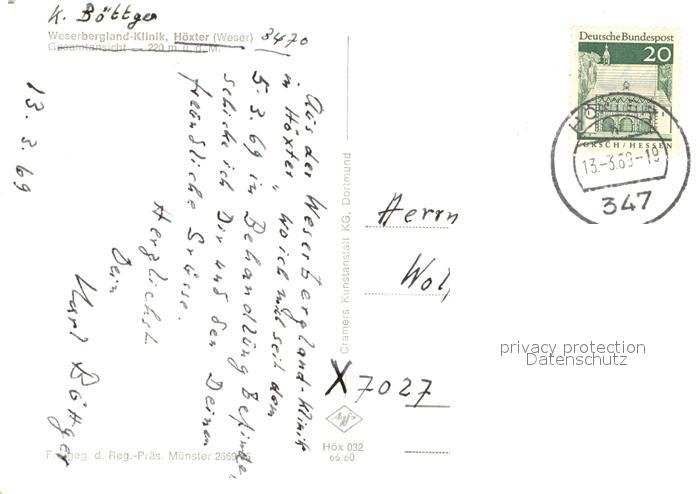 K. Böttger
Weserbergland-Klinik, Höxter (Weser) 3470
Gesamtansicht — 220 m ü. d. M.
13. 3. 69
Aus der Weserbergland-Klinik
in Höxter, wo ich mich seit dem
5. 3. 69 in Behandlung befinde,
schicke ich Dir und den Deinen
freundliche Grüsse.
Herzlichst
Dein
Karl Böttger
Cramers Kunstanstalt KG, Dortmund
Deutsche Bundespost
20
LORSCH/HESSEN
13.-3.69-19
347
Herrn
Wol
X 7027
privacy protection
Datenschutz
Höx 032
66.60
Freigeg. d. Reg.-Präs. Münster